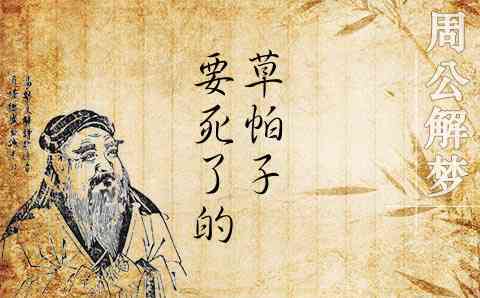 周公解梦
草帕子
要死了的